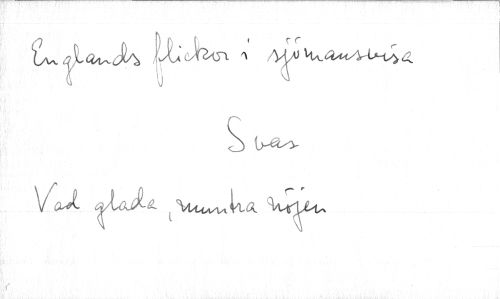 Englands flickor i sjömansvisa
Svas
Vad glada, muntra nöjen